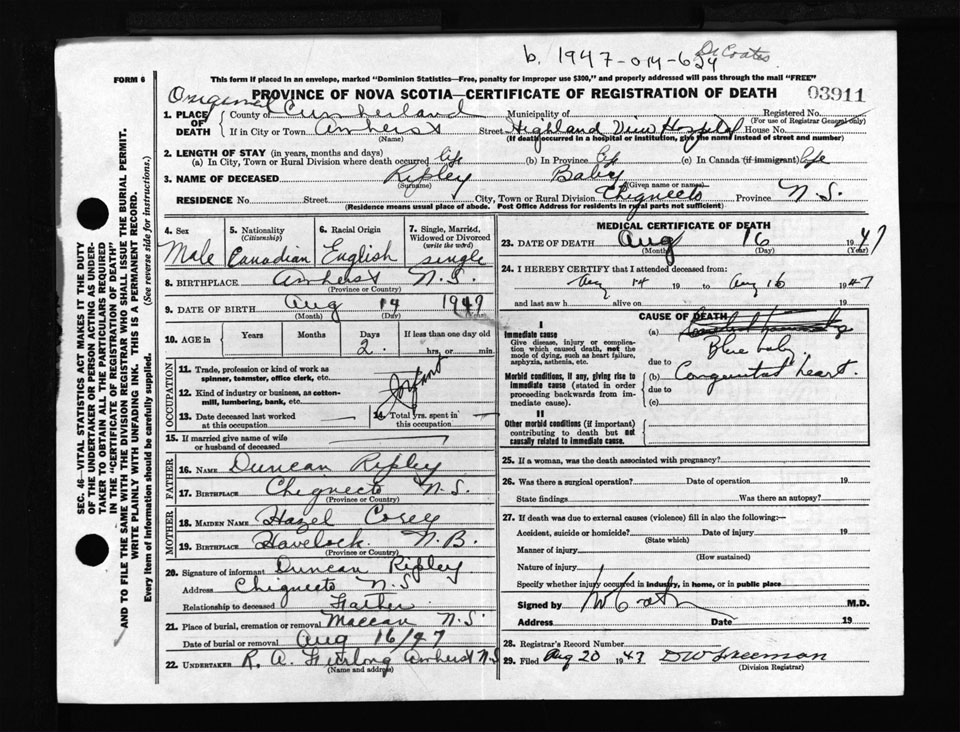 b. 1947-014-624 Dr Coates
FORM 6
This form if placed in an envelope, marked "Dominion Statistics—Free, penalty for improper use $300," and properly addressed will pass through the mail "FREE"
PROVINCE OF NOVA SCOTIA—CERTIFICATE OF REGISTRATION OF DEATH 03911
Original
1. PLACE OF DEATH { County of Cumberland Municipality of Registered No.
(For use of Registrar General only)
If in City or Town Amherst Street Highland View Hospital House No.
(Name) (If death occurred in a hospital or institution, give the name instead of street and number)
2. LENGTH OF STAY (in years, months and days)
(a) In City, Town or Rural Division where death occurred life (b) In Province life (c) In Canada (if immigrant) life
3. NAME OF DECEASED Ripley Baby
(Surname) (Given name or names)
RESIDENCE No. Street City, Town or Rural Division Chignecto Province N.S.
(Residence means usual place of abode. Post Office Address for residents in rural parts not sufficient)
4. Sex 5. Nationality (Citizenship) 6. Racial Origin 7. Single, Married, Widowed or Divorced (write the word)
Male Canadian English single
8. BIRTHPLACE Amherst N.S.
(Province or Country)
9. DATE OF BIRTH Aug 14 1947
(Month) (Day) (Year)
10. AGE in { Years Months Days If less than one day old
2 hrs. or min.
OCCUPATION
11. Trade, profession or kind of work as spinner, teamster, office clerk, etc.
12. Kind of industry or business, as cotton-mill, lumbering, bank, etc.
Infant
13. Date deceased last worked at this occupation 14. Total yrs. spent in this occupation
15. If married give name of wife or husband of deceased
FATHER
16. NAME Duncan Ripley
17. BIRTHPLACE Chignecto N.S.
(Province or Country)
MOTHER
18. MAIDEN NAME Hazel Corey
19. BIRTHPLACE Havelock N.B.
(Province or Country)
20. Signature of informant Duncan Ripley
Address Chignecto N.S
Relationship to deceased Father
21. Place of burial, cremation or removal Maccan N.S.
Date of burial or removal Aug 16/47
22. UNDERTAKER R. A. Furlong Amherst N.S
(Name and address)
MEDICAL CERTIFICATE OF DEATH
23. DATE OF DEATH Aug 16 1947
(Month) (Day) (Year)
24. I HEREBY CERTIFY that I attended deceased from:
Aug 14 19 to Aug 16 1947
and last saw h alive on 19
CAUSE OF DEATH
I
Immediate cause
Give disease, injury or complication which caused death, not the mode of dying, such as heart failure, asphyxia, asthenia, etc.
(a)
Blue baby
due to
Morbid conditions, if any, giving rise to immediate cause (stated in order proceeding backwards from immediate cause).
(b) Congenital heart.
due to
(c)
II
Other morbid conditions (if important) contributing to death but not causally related to immediate cause.
25. If a woman, was the death associated with pregnancy?
26. Was there a surgical operation? Date of operation 19
State findings Was there an autopsy?
27. If death was due to external causes (violence) fill in also the following:—
Accident, suicide or homicide? Date of injury 19
(State which)
Manner of injury
(How sustained)
Nature of injury
Specify whether injury occurred in industry, in home, or in public place
Signed by M.D.
Address Date 19
28. Registrar's Record Number
29. Filed Aug 20 1947 DW Freeman
(Division Registrar)
SEC. 46—VITAL STATISTICS ACT MAKES IT THE DUTY
OF THE UNDERTAKER OR PERSON ACTING AS UNDER-
TAKER TO OBTAIN ALL THE PARTICULARS REQUIRED
IN THE "CERTIFICATE OF REGISTRATION OF DEATH"
AND TO FILE THE SAME WITH THE DIVISION REGISTRAR WHO SHALL ISSUE THE BURIAL PERMIT.
WRITE PLAINLY WITH UNFADING INK. THIS IS A PERMANENT RECORD.
Every item of information should be carefully supplied. (See reverse side for instructions.)